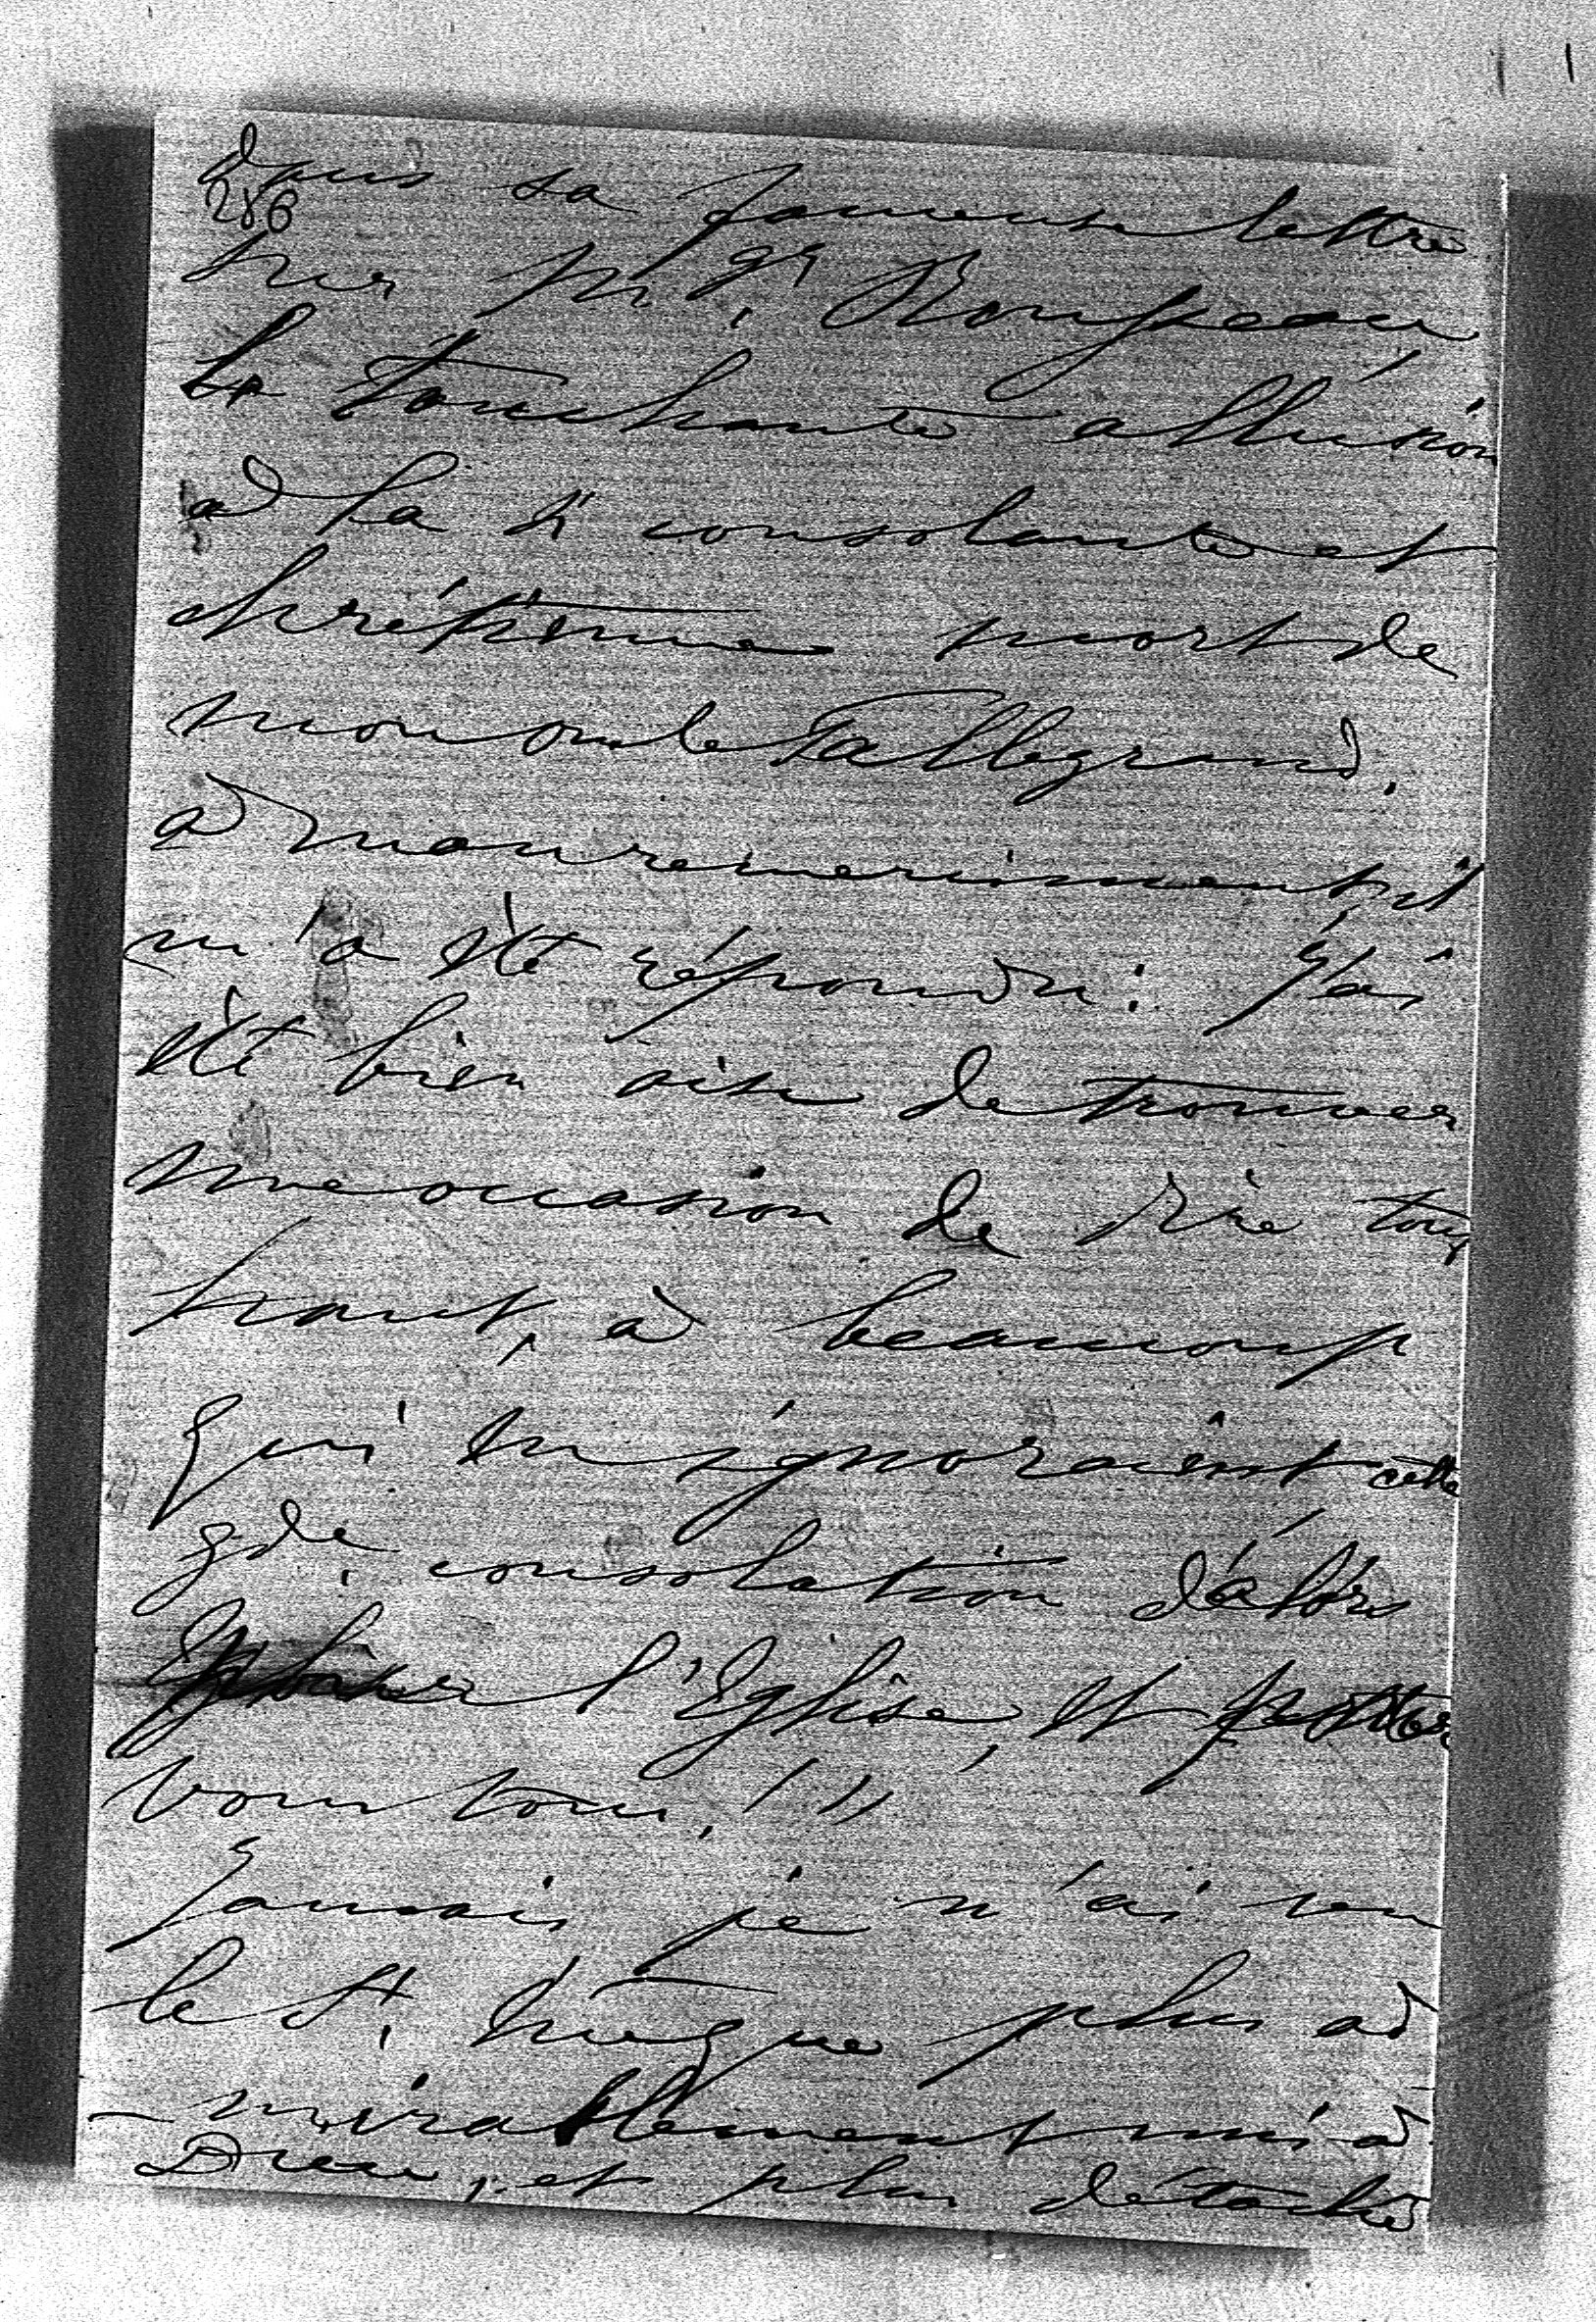 dans sa fameuse lettre
286
sur Mgr. Rousseau
la touchante allusion
à la si consolante et
chrétienne mort de
mon oncle Tallegrand.
à mon remerciment, il
m'a été répondu: J'ai
été bien aise de trouver
une occasion de dire tout
haut, à beaucoup
qui en ignoraient cette
gde. consolation d'alors
l'Eglise, et
vous tous!"
Jamais je n'ai vu
le St. Evêque plus ad
-mirablement uni à
Dieu, et plus détaché